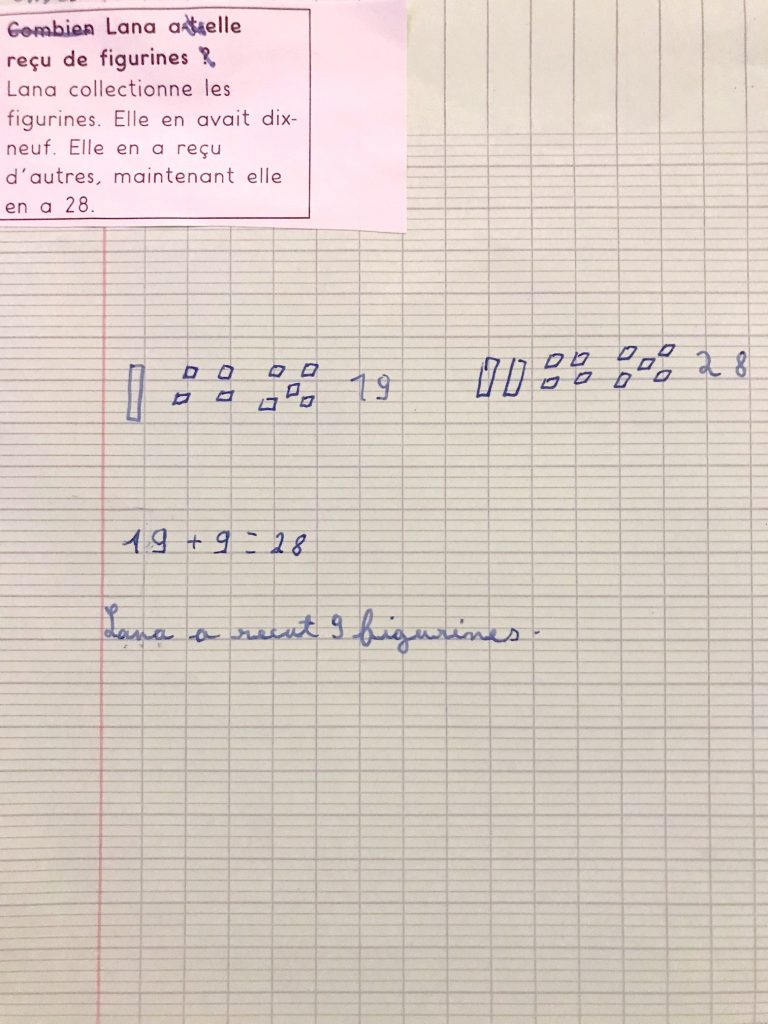 Combien Lana a-t-elle
reçu de figurines ?
Lana collectionne les
figurines. Elle en avait dix-
neuf. Elle en a reçu
d'autres, maintenant elle
en a 28.
19 28
19 + 9 = 28
Lana a recut 9 figurines.